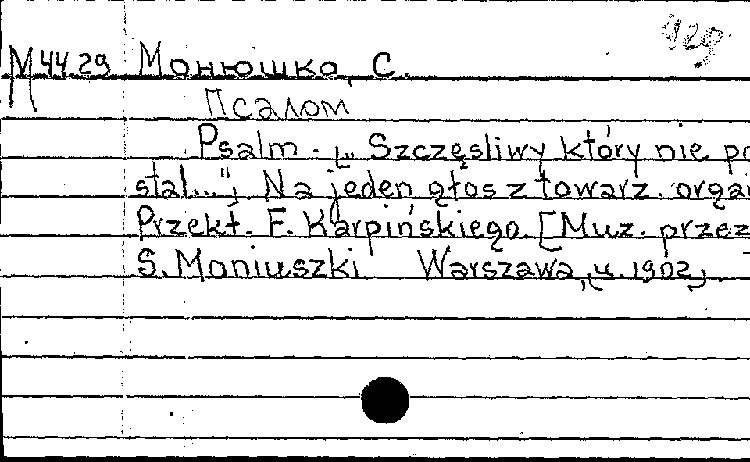 929
М4429 Монюшко, С.
Псалом
Psalm. [„Szczęsliwy który nie po
stal..."]. Na jeden głos z towarz. orga
Przekł. F. Karpińskiego. [Muz. przez
S. Moniuszki Warszawa, [ц. 1902]